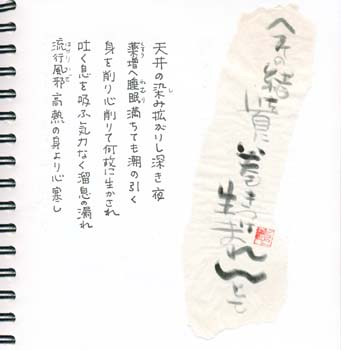 へその緒が首に
巻きつき
生まれんとも
天井の染み拡がりし深き夜
薬増へ睡眠満ちても潮の引く
身を削り心削りて何故に生かされ
吐く息を吸ふ気力なく溜息の漏れ
流行風邪高熱の身より心寒し